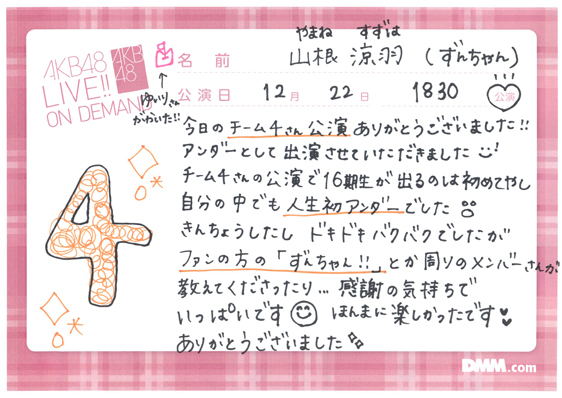 やまね すずは
AKB48
LIVE!!
ON DEMAND
AKB
48
名前 山根 涼羽 (ずんちゃん)
公演日 12月 22日 1830 公演
ゆいりさん
かわいた!!
今日のチーム4さん公演ありがとうございました!!
アンダーとして出演させていただきました
チーム4さんの公演で16期生が出るのは初めてやし
自分の中でも人生初アンダーでした
きんちょうしたし ドキドキバクバクでしたが
ファンの方の「ずんちゃん!!」とか周りのメンバーさんが
教えてくださったり... 感謝の気持ちで
いっぱいです ほんまに楽しかったです
ありがとうございました
4
DMM.com